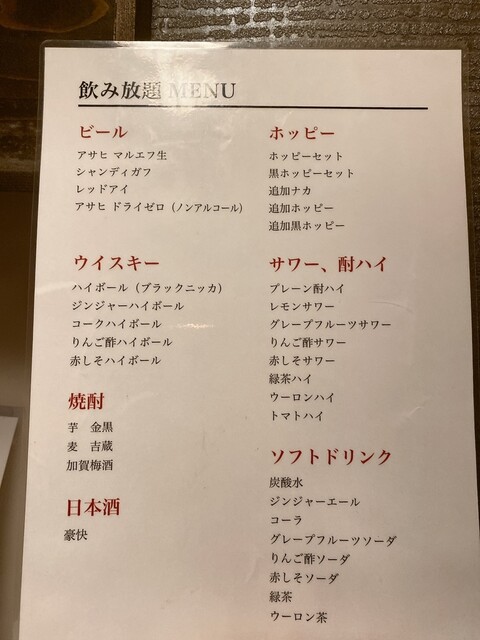 飲み放題 MENU
ビール
アサヒ マルエフ生
シャンディガフ
レッドアイ
アサヒ ドライゼロ（ノンアルコール）
ウイスキー
ハイボール（ブラックニッカ）
ジンジャーハイボール
コークハイボール
りんご酢ハイボール
赤しそハイボール
焼酎
芋　金黒
麦　吉蔵
加賀梅酒
日本酒
豪快
ホッピー
ホッピーセット
黒ホッピーセット
追加ナカ
追加ホッピー
追加黒ホッピー
サワー、酎ハイ
プレーン酎ハイ
レモンサワー
グレープフルーツサワー
りんご酢サワー
赤しそサワー
緑茶ハイ
ウーロンハイ
トマトハイ
ソフトドリンク
炭酸水
ジンジャーエール
コーラ
グレープフルーツソーダ
りんご酢ソーダ
赤しそソーダ
緑茶
ウーロン茶